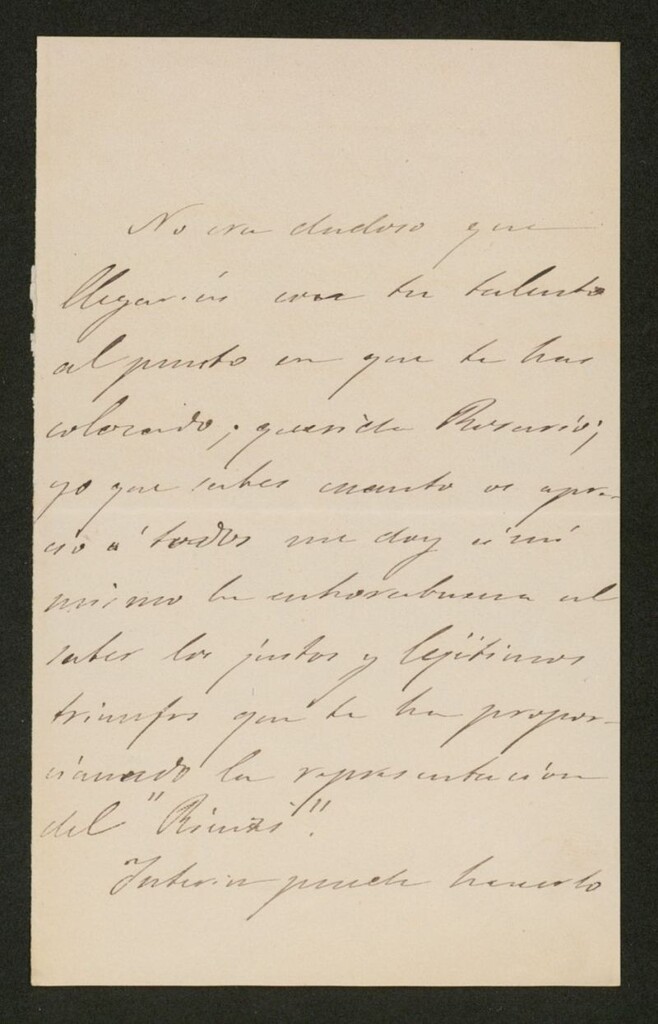 No era dudoso que
llegarias con tu talento
al punto en que te has
colocado, querida Rosario;
yo que sabes cuanto os apre-
cio á todos me doy á mi
mismo la enhorabuena al
saber los justos y legitimos
triunfos que te ha propor-
cionado la representacion
del "Rienzi".
Interin puede hacerlo